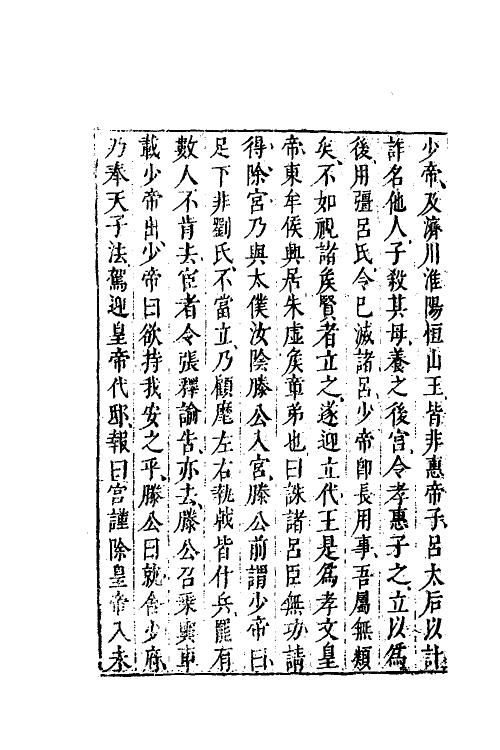 少帝及濟川淮陽恒山王皆非惠帝子呂太后以計
詐名他人子殺其母養之後宮令孝惠子之立以爲
後用彊呂氏今已滅諸呂少帝卽長用事吾屬無類
矣不如視諸矦賢者立之遂迎立代王是爲孝文皇
帝東牟侯興居朱虚矦章弟也曰誅諸呂臣無功請
得除宮乃與太僕汝陰滕公入宮滕公前謂少帝曰
足下非劉氏不當立乃顧麾左右執戟皆仆兵罷有
數人不肯去宦者令張釋諭告亦去滕公召乘輿車
載少帝出少帝曰欲持我安之乎滕公曰就舍少府
乃奉天子法駕迎皇帝代邸報曰宮謹除皇帝入未